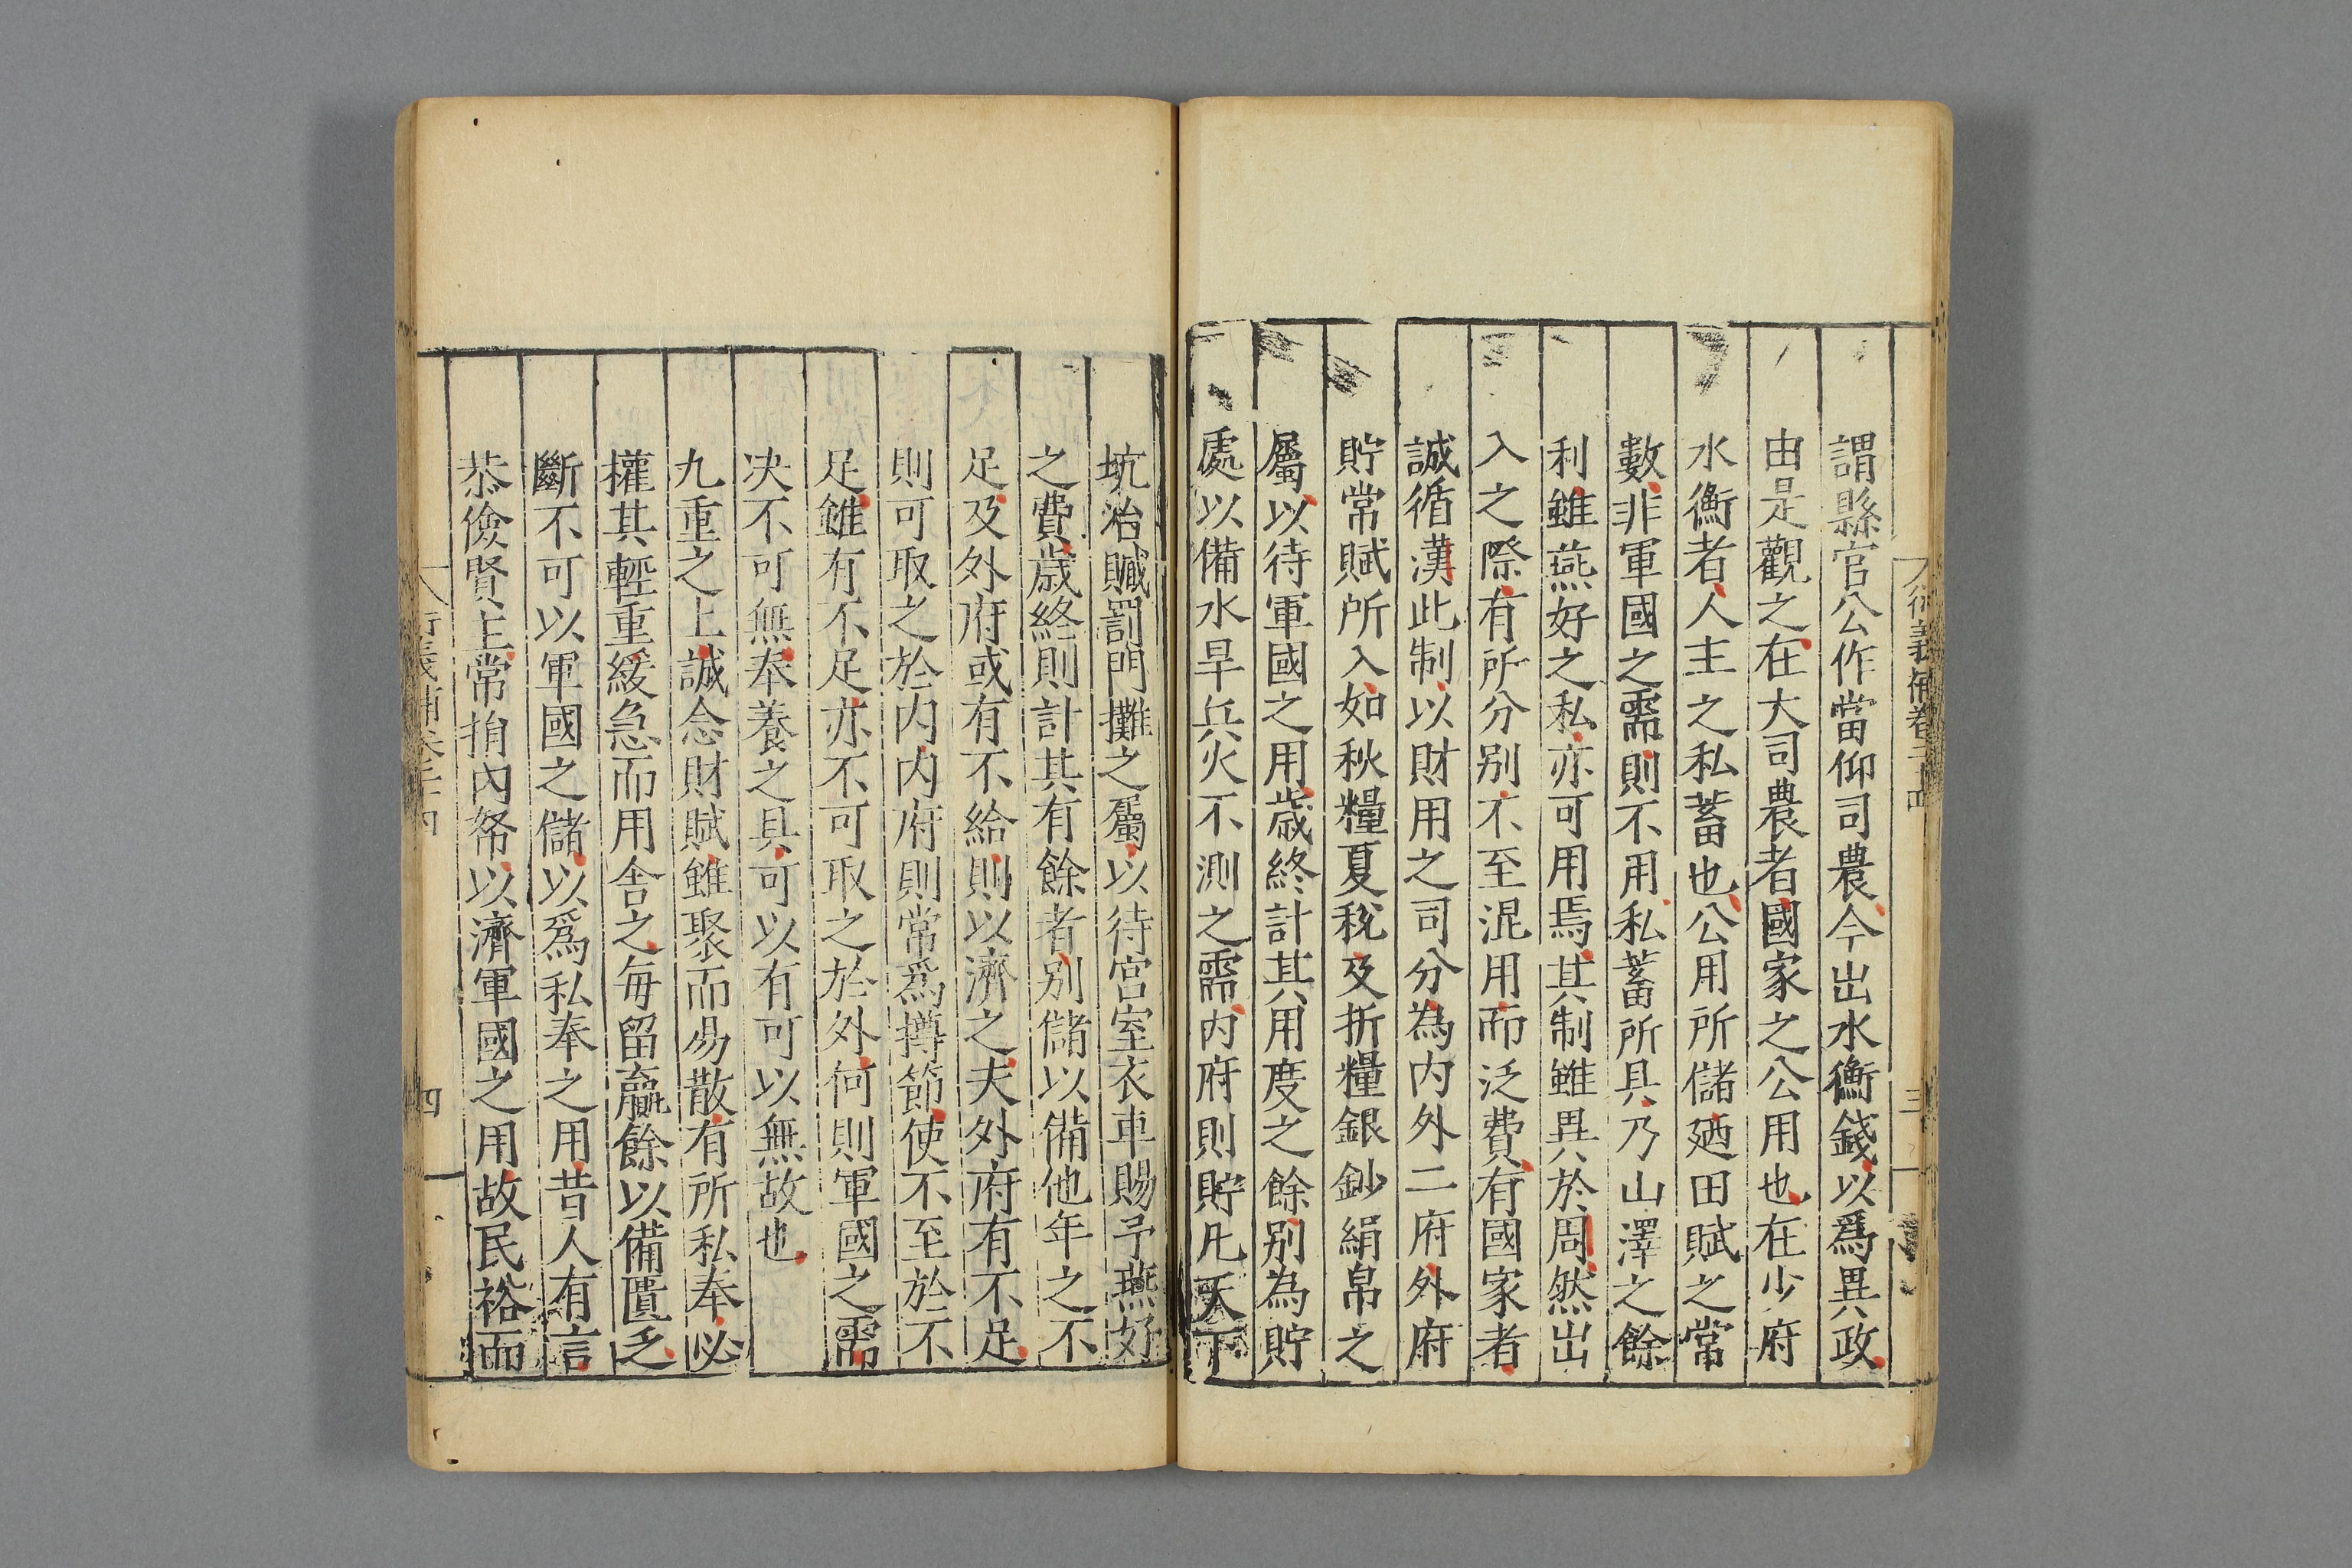 衍義補卷二十四
三
謂縣官公作當仰司農今出水衡錢以爲異政
由是觀之在大司農者國家之公用也在少府
水衡者人主之私蓄也公用所儲廼田賦之常
數非軍國之需則不用私蓄所具乃山澤之餘
利雖燕好之私亦可用焉其制雖異於周然出
入之際有所分别不至混用而泛費有國家者
誠循漢此制以財用之司分為内外二府外府
貯常賦所入如秋糧夏稅及折糧銀鈔絹帛之
屬以待軍國之用歲終計其用度之餘别為貯
處以備水旱兵火不測之需内府則貯凡天下
坑治贓罰門攤之屬以待宫室衣車賜予燕好
之費歲終則計其有餘者别儲以備他年之不
足及外府或有不給則以濟之夫外府有不足
則可取之於内内府則常爲撙節使不至於不
足雖有不足亦不可取之於外何則軍國之需
决不可無奉養之具可以有可以無故也
九重之上誠念財賦雖聚而易散有所私奉必
權其輕重緩急而用舍之每留贏餘以備匱乏
斷不可以軍國之儲以爲私奉之用昔人有言
恭儉賢主常捐内帑以濟軍國之用故民裕而
衍義補卷二十四
四